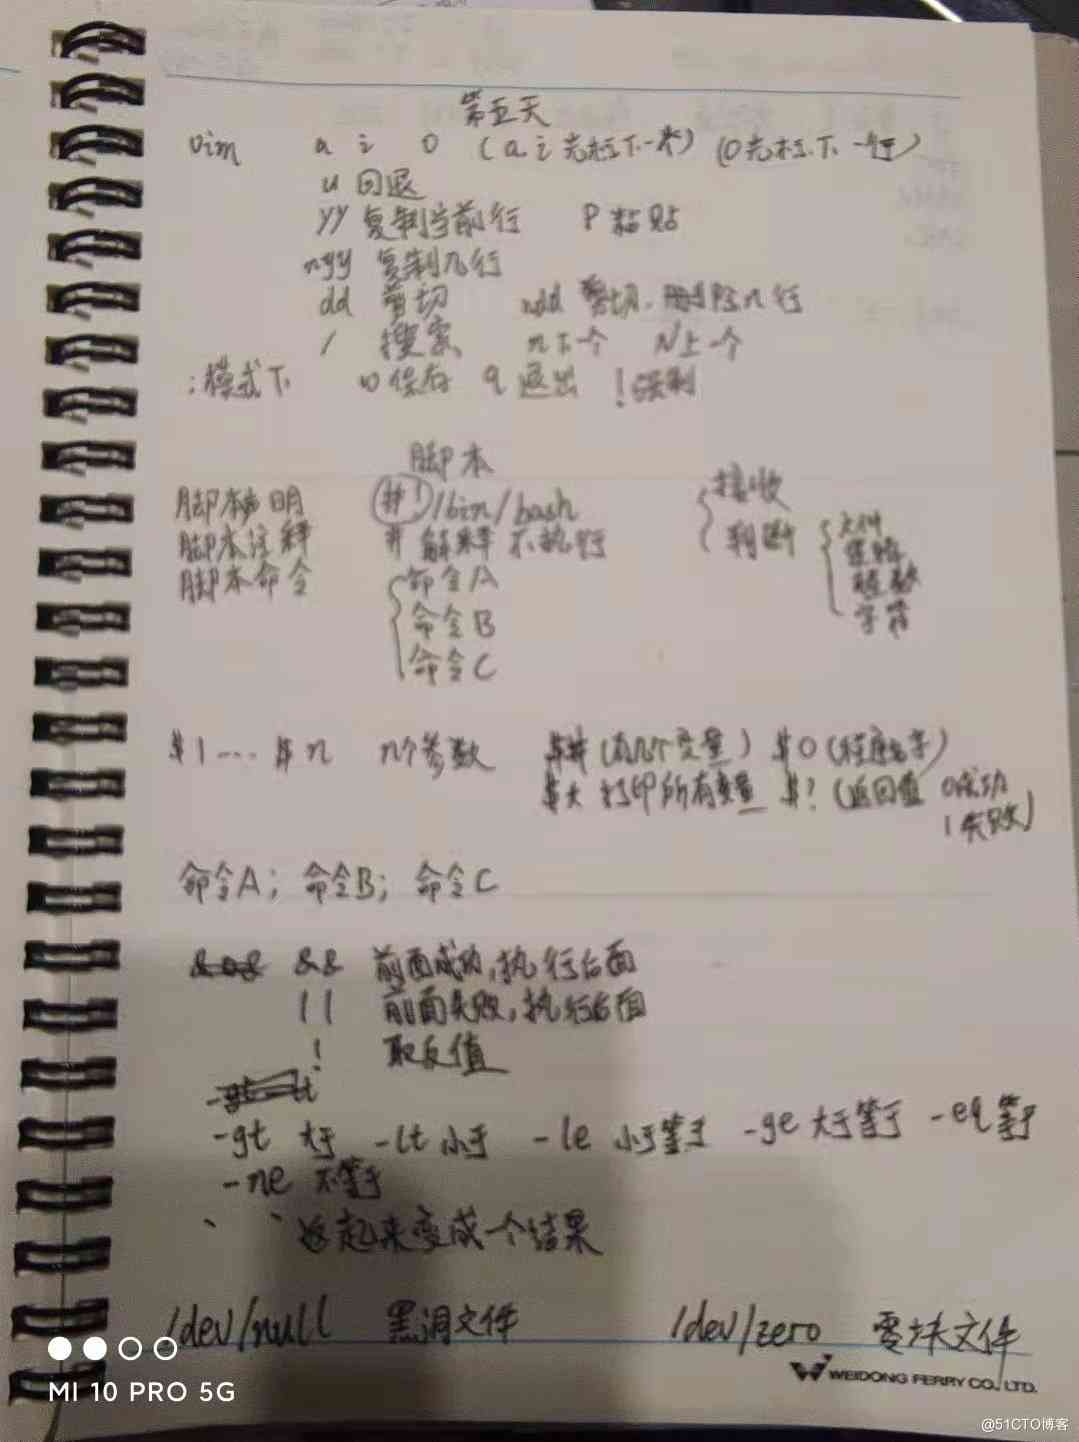 第五天
vim a i o (a i 光标下一来) (o光标下一行)
u 回退
yy 复制当前行 P 粘贴
nyy 复制几行
dd 剪切 ndd 剪切.删除n行
/ 搜索 n下个 N上一个
:模式下 w保存 q 退出 !强制
脚本
脚本声明 #!/bin/bash 接收
脚本注释 # 解释 不执行 判断 文件
脚本命令 命令A 整数
命令B 字符
命令C
$1 .... $n n个参数 $# (有几个变量) $0 (程序名字)
$* 打印所有变量 $? (返回值 0成功
1失败)
命令A; 命令B; 命令C
&& 前面成功,执行后面
|| 前面失败,执行后面
! 取反值
-gt 大于 -lt 小于 -le 小于等于 -ge 大于等于 -eq 等于
-ne 不等于
` ` 返起来变成一个结果
/dev/null 黑洞文件 /dev/zero 零文件
WEIDONG FERRY CO., LTD.
MI 10 PRO 5G
@51CTO博客